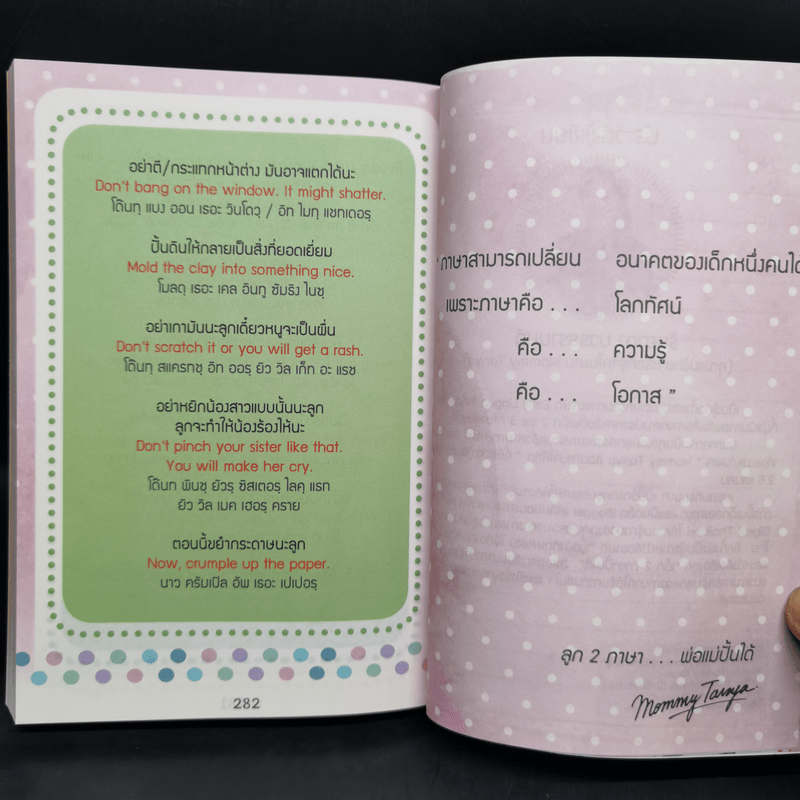 อย่าตี/กระแทกหน้าต่าง มันอาจแตกได้นะ
Don't bang on the window. It might shatter.
โด๊นทฺ แบง ออน เธอะ วินโดวฺ / อิท ไมทฺ แชทเตอรฺ
ปั้นดินให้กลายเป็นสิ่งที่ยอดเยี่ยม
Mold the clay into something nice.
โมลดฺ เธอะ เคล อินทู ซัมธิง ไนซฺ
อย่าเกามันนะลูกเดี๋ยวหนูจะเป็นผื่น
Don't scratch it or you will get a rash.
โด๊นทฺ สแครทชฺ อิท ออรฺ ยิว วิล เก็ท อะ แรช
อย่าหยิกน้องสาวแบบนั้นนะลูก
ลูกจะทำให้น้องร้องไห้นะ
Don't pinch your sister like that.
You will make her cry.
โด๊นท พินชฺ ยัวรฺ ซิสเตอรฺ ไลคฺ แธท
ยิว วิล เมค เฮอรฺ คราย
ตอนนี้ขยำกระดาษนะลูก
Now, crumple up the paper.
นาว ครัมเปิล อัพ เธอะ เปเปอรฺ
282
“ ภาษาสามารถเปลี่ยน อนาคตของเด็กหนึ่งคนได้
เพราะภาษาคือ . . . โลกทัศน์
คือ . . . ความรู้
คือ . . . โอกาส ”
ลูก 2 ภาษา . . . พ่อแม่ปั้นได้
Mommy Tanya